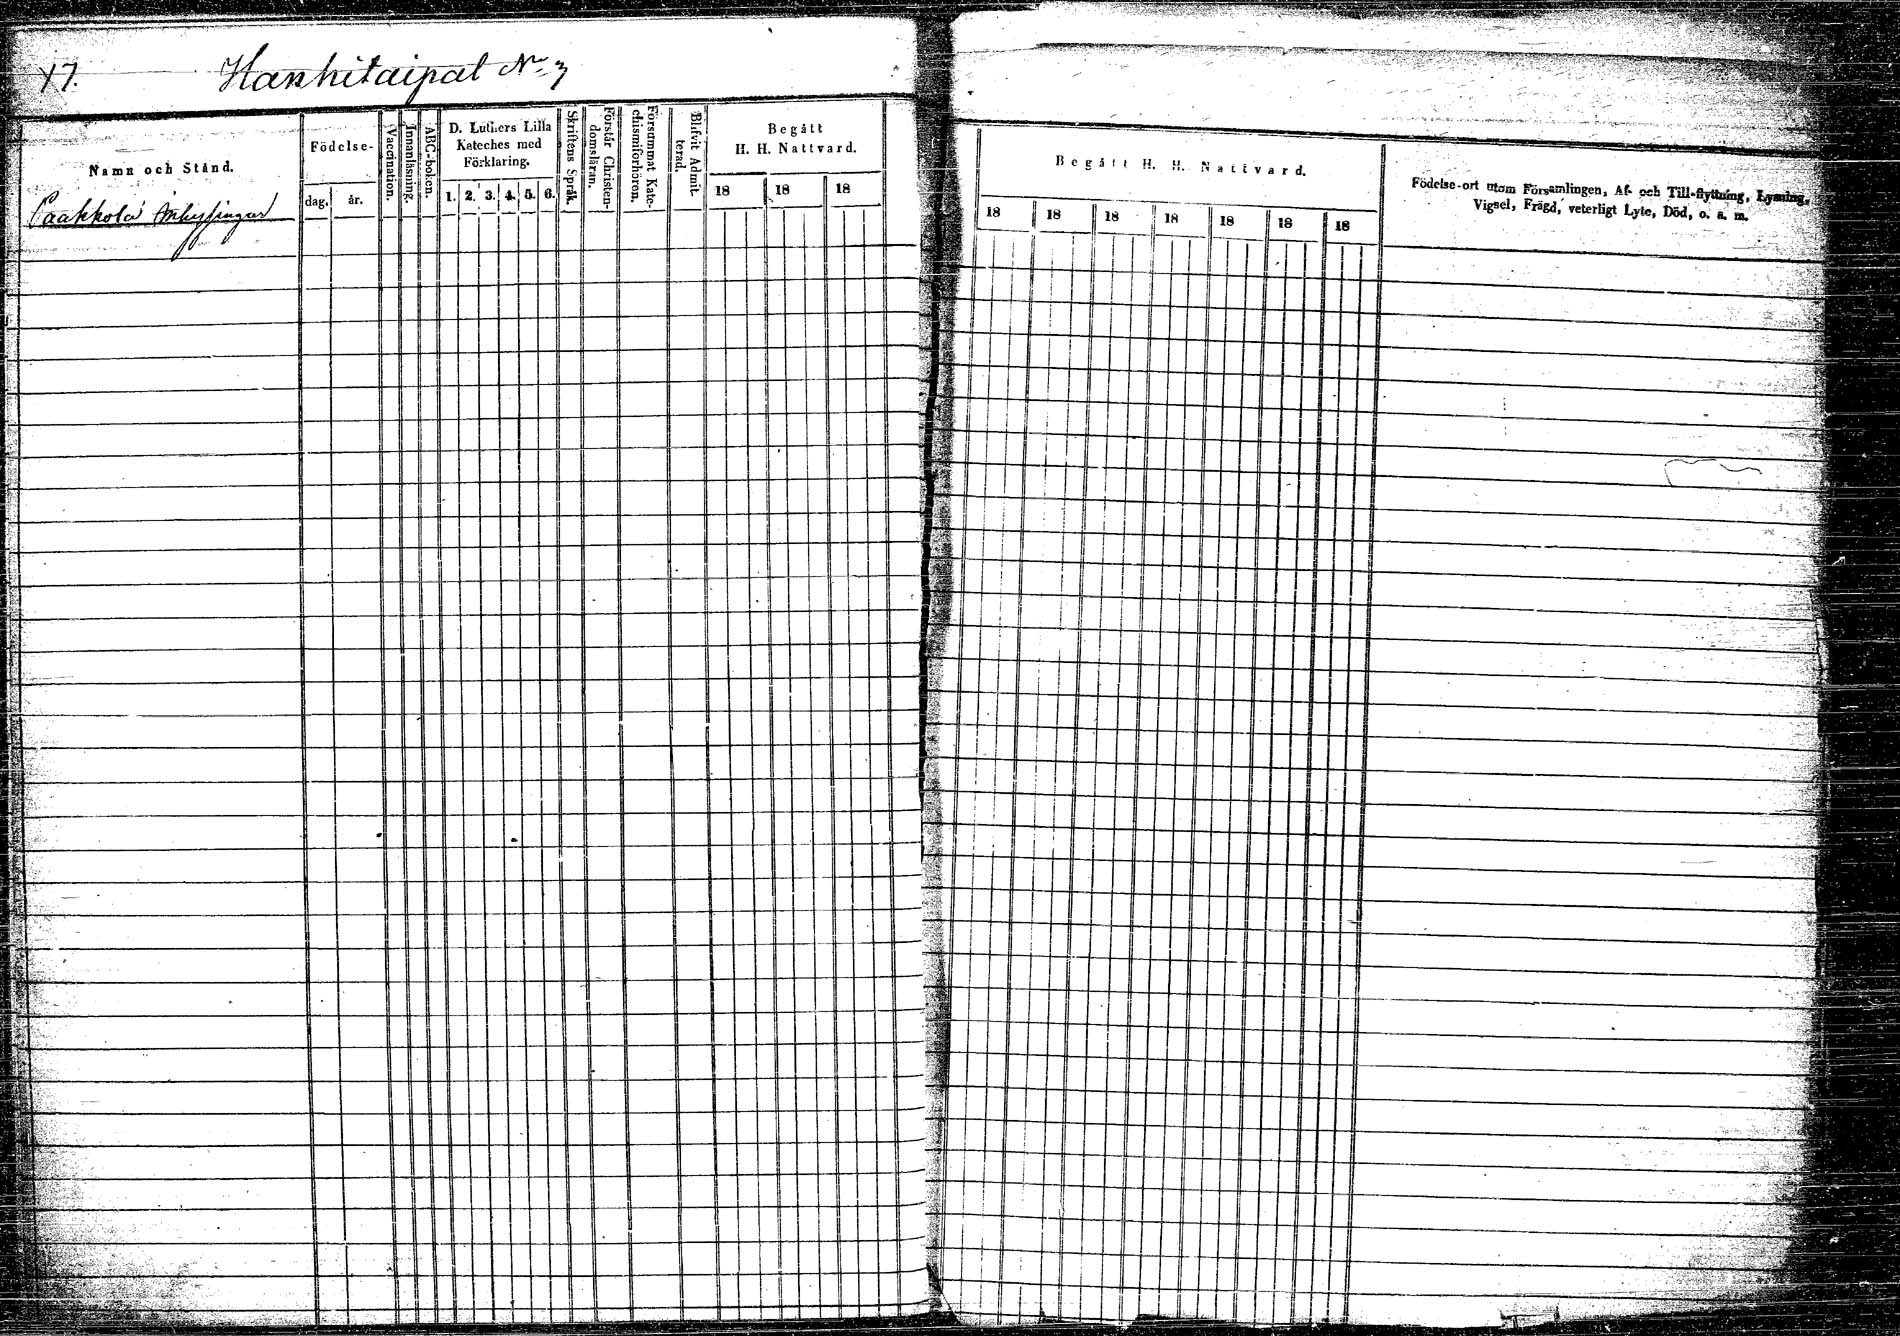 17. Hanhitaipal No 3
Namn och Stånd.
Födelse-
dag. år.
Vaccination.
Innanläsning.
ABC-boken.
D. Luthers Lilla
Kateches med
Förklaring.
1. 2. 3. 4. 5. 6.
Skriftens Språk.
Förstår Christen-
domsläran.
Försummat Kate-
chismiförhören.
Blifvit Admit-
terad.
Begått
H. H. Nattvard.
18 18 18
Paakkola Inhysingar
Begått H. H. Nattvard.
18 18 18 18 18 18 18
Födelse-ort utom Församlingen, Af- och Till-flyttning, Lysning,
Vigsel, Frägd, veterligt Lyte, Död, o. s. m.